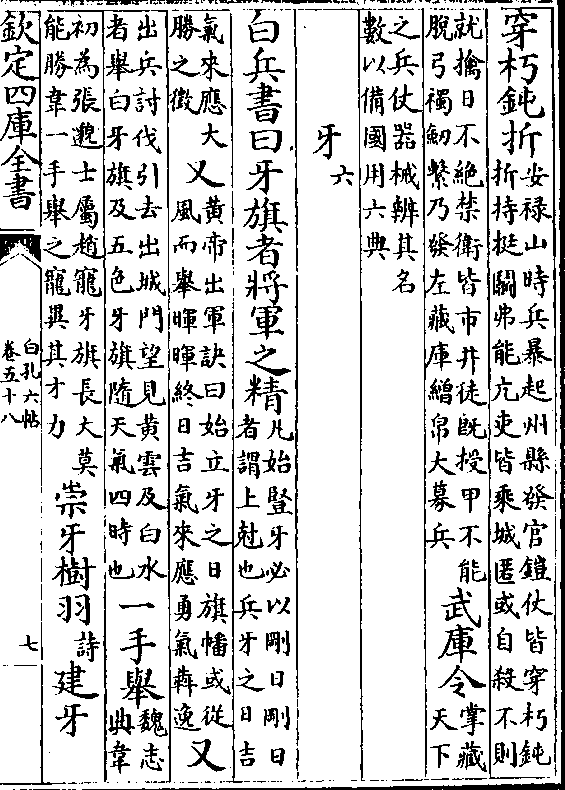 穿朽鈍折安禄山時兵暴起州縣發官鎧仗皆穿朽鈍
折持挺鬬弗能亢吏皆乘城匿或自殺不則
就擒日不絶禁衛皆市井徒既授甲不能
脫弓襡劒繫乃發左藏庫繒帛大募兵
武庫令掌藏天下
之兵仗器械辨其名
數以備國用六典
牙六
白兵書曰牙旗者將軍之精凡始豎牙必以剛日剛日
者謂上尅也兵牙之日吉
氣來應大勝之徵
又黃帝出軍訣曰始立牙之日旗幡或從
風而舉暉暉終日吉氣來應勇氣犇逸
又
出兵討伐引去出城門望見黃雲及白水
者舉白牙旗及五色牙旗隨天氣四時也
一手舉魏志典韋
初為張邈士屬趙寵牙旗長大莫
能勝韋一手舉之寵異其才力
崇牙樹羽詩
建牙
欽定四庫全書
白孔六帖
卷五十八
七